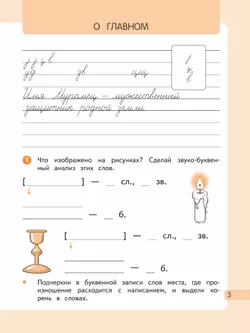 О ГЛАВНОМ
уд зв цщ
Илья Муромец – мужественный
защитник родной земли.
1 Что изображено на рисунках? Сделай звуко-буквен-
ный анализ этих слов.
[ ] — сл., зв.
— б.
[ ] — сл., зв.
— б.
• Подчеркни в буквенной записи слов места, где про-
изношение расходится с написанием, и выдели ко-
рень в словах.
3